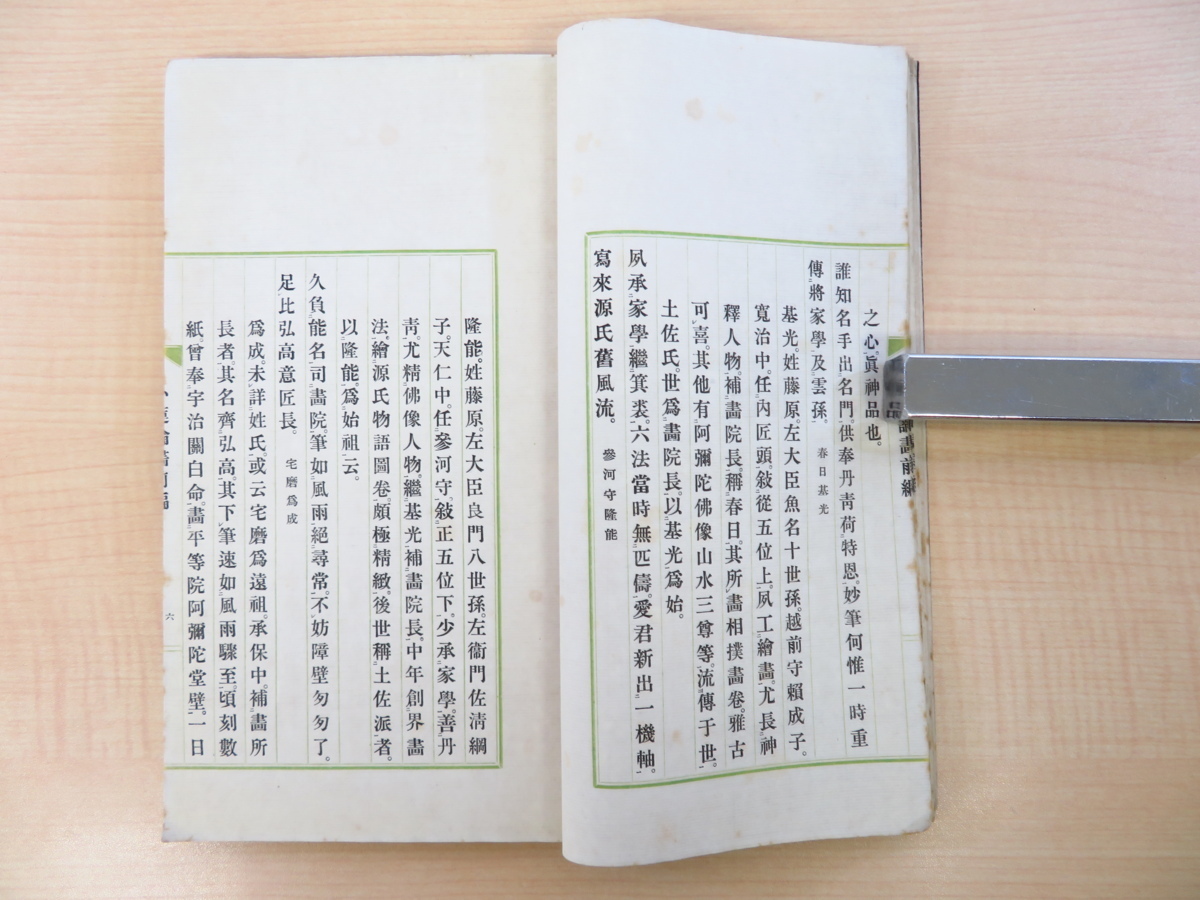 之心。眞神品也。
誰知名手出名門。供奉丹靑荷特恩。妙筆何惟一時重
傳將家學及雲孫。 春日基光
基光。姓藤原。左大臣魚名十世孫。越前守賴成子。
寬治中。任內匠頭。敍從五位上。夙工繪畫。尤長神
釋人物。補畫院長。稱春日。其所畫相撲畫卷。雅古
可喜。其他有阿彌陀佛像山水三尊等。流傳于世。
土佐氏。世爲畫院長。以基光爲始。
夙承家學繼箕裘。六法當時無匹儔。愛君新出一機軸。
寫來源氏舊風流。 參河守隆能
隆能。姓藤原。左大臣良門八世孫。左衞門佐淸綱
子。天仁中。任參河守。敍正五位下。少承家學。善丹
靑。尤精佛像人物。繼基光補畫院長。中年創界畫
法。繪源氏物語圖卷。頗極精緻。後世稱土佐派者。
以隆能。爲始祖云。
久負能名司畫院。筆如風雨絕尋常。不妨障壁匆匆了。
足比弘高意匠長。 宅磨爲成
爲成。未詳姓氏。或云宅磨爲遠祖。承保中。補畫所
長者。其名齊弘高。其下筆速如風雨驟至。頃刻數
紙。曾奉宇治關白命。畫平等院阿彌陀堂壁。一日
六